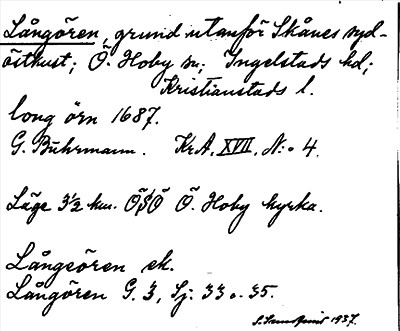 Långören, grund utanför Skånes syd-
östkust; Ö. Hoby sn; Ingelstads hd;
Kristianstads l.
long örn 1687.
G. Buhrmann. Kr.A. XVII, N:o 4.
Läge 3½ km. ÖSÖ Ö. Hoby kyrka.
Långeören sk.
Långören G. 3, Sj. 33 o. 35.
1937.